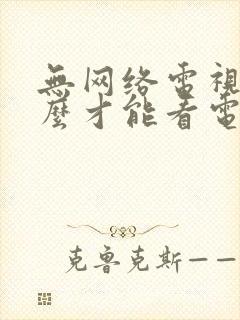 無网络電視
麼才能看電
克鲁克斯——